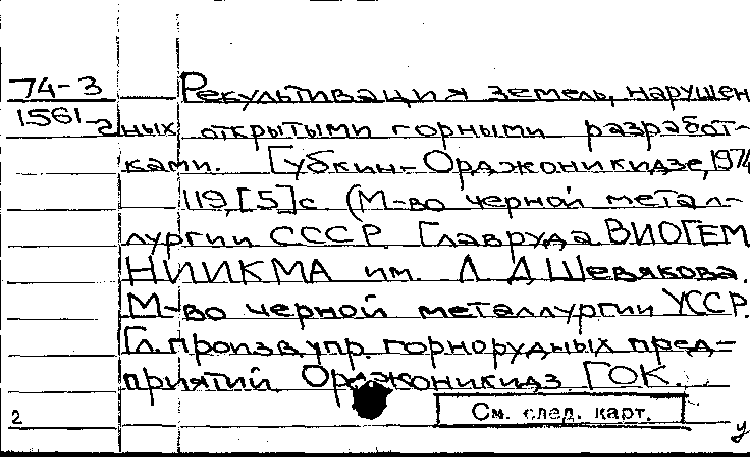 74-3
1561-г
Рекультивация земель, нарушен
ных открытыми горными разработ-
ками. Губкин-Орджоникидзе, 1974
119, [5] с (М-во черной метал-
лургии СССР. Главруда. ВИОГЕМ
НИИКМА им. Л Д Шевякова.
М-во черной металлургии УССР.
Гл. произв. упр. горнорудных пред-
приятий. Орджоникидз. ГОК.
См. след. карт.
2
у